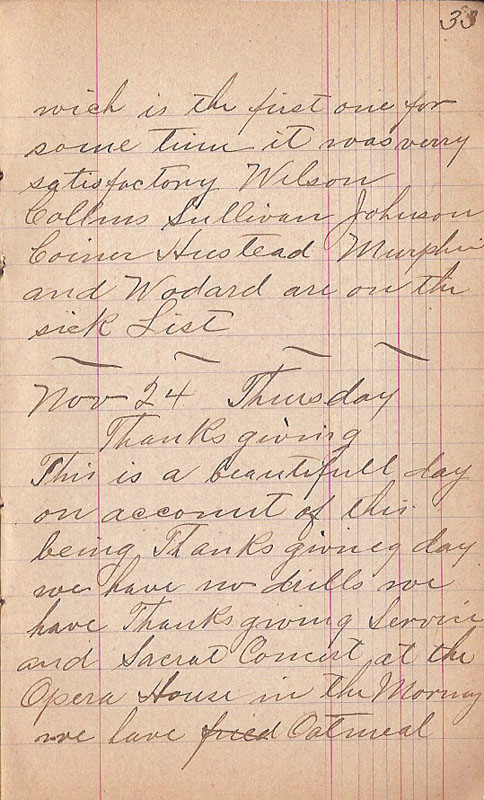 33
wich is the first one for
some time it was verry
satisfactory Wilson
Collins Sullivan Johnson
Coiner Hustead Murphy
and Wodard are on the
sick List
Nov 24 Thursday
Thanksgiving
This is a beautifull day
on account of this
being Thanksgiving day
we have no drills we
have Thanksgiving Service
and Sacrat Concert at the
Opera House in the Morning
we have fried Oatmeal